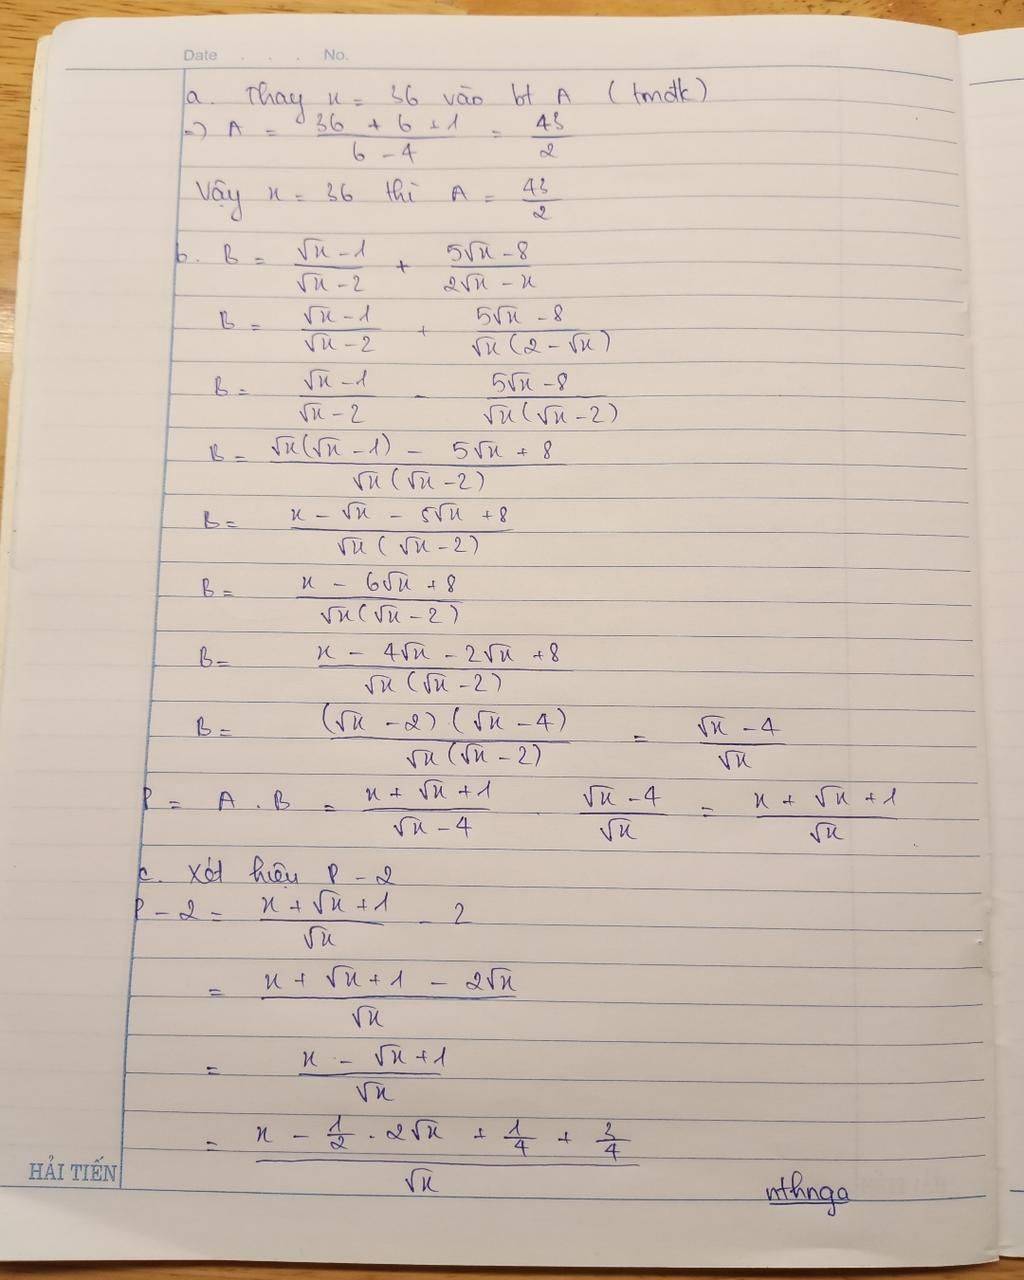 Date . . . . No.
a. Thay x = 36 vào bt A (tmđk)
=> A = \frac{36 + 6 + 1}{6 - 4} = \frac{43}{2}
Vậy x = 36 thì A = \frac{43}{2}
b. B = \frac{√x - 1}{√x - 2} + \frac{5√x - 8}{2√x - x}
B = \frac{√x - 1}{√x - 2} + \frac{5√x - 8}{√x(2 - √x)}
B = \frac{√x - 1}{√x - 2} - \frac{5√x - 8}{√x(√x - 2)}
B = \frac{√x(√x - 1) - 5√x + 8}{√x(√x - 2)}
B = \frac{x - √x - 5√x + 8}{√x(√x - 2)}
B = \frac{x - 6√x + 8}{√x(√x - 2)}
B = \frac{x - 4√x - 2√x + 8}{√x(√x - 2)}
B = \frac{(√x - 2)(√x - 4)}{√x(√x - 2)} = \frac{√x - 4}{√x}
P = A . B = \frac{x + √x + 1}{√x - 4} \frac{√x - 4}{√x} = \frac{x + √x + 1}{√x}
c. Xét hiệu P - 2
P - 2 = \frac{x + √x + 1}{√x} - 2
= \frac{x + √x + 1 - 2√x}{√x}
= \frac{x - √x + 1}{√x}
= \frac{x - \frac{1}{2} . 2√x + \frac{1}{4} + \frac{3}{4}}{√x}
HẢI TIẾN
nthnga